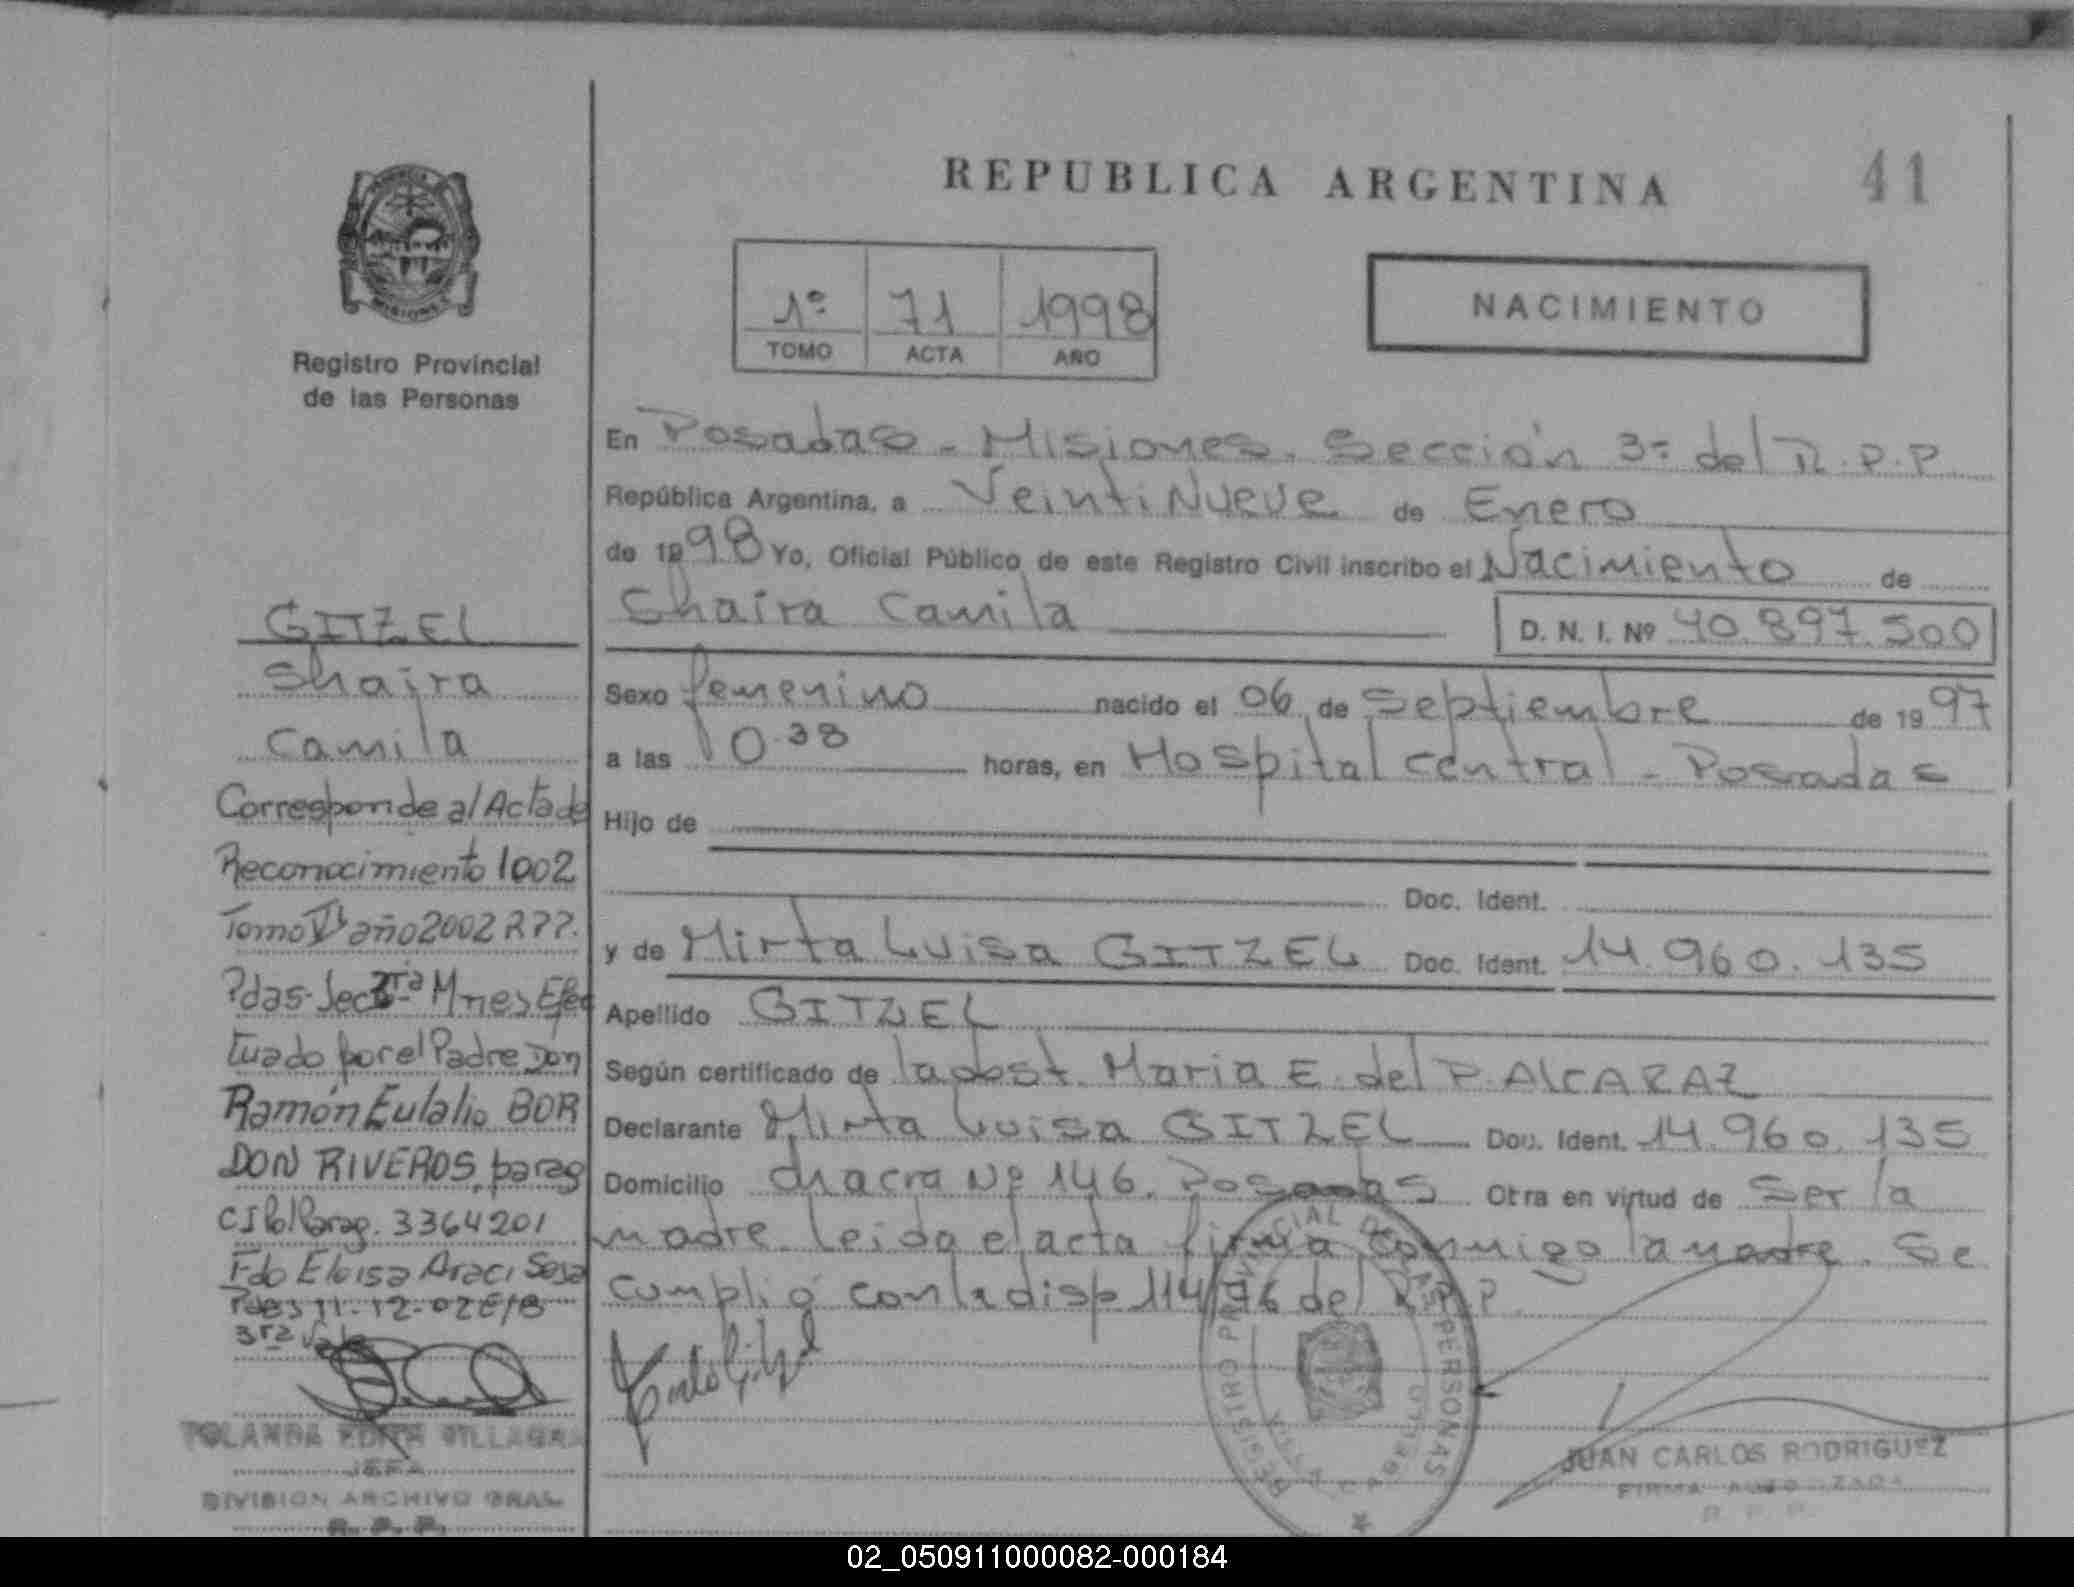 REPUBLICA ARGENTINA
41
1º 71 1998
TOMO ACTA AÑO
NACIMIENTO
MISIONES
Registro Provincial
de las Personas
En Posadas - Misiones. Sección 3ª del R.P.P.
República Argentina, a VeintiNueve de Enero
de 1998 Yo, Oficial Público de este Registro Civil inscribo el Nacimiento de
Shaira Camila
D. N. I. Nº 40.897.500
Sexo femenino nacido el 06 de Septiembre de 1997
a las 10.38 horas, en Hospital Central - Posadas
Hijo de
Doc. Ident.
y de Mirta Luisa GITZEL Doc. Ident. 14.960.135
Apellido GITZEL
Según certificado de la obst. Maria E. del P. ALCARAZ
Declarante Mirta Luisa GITZEL Dou. Ident. 14.960.135
Domicilio chacra Nº 146. Posadas Otra en virtud de Ser la
madre. Leida el acta firma conmigo la madre. Se
cumplió con la disp 114/96 del R.P.P.
GITZEL
Shaira
Camila
Corresponde al Acta de
Reconocimiento 1002
Tomo VIº año 2002 RPP.
Pdas-Sec 3ra Mnes Efec
tuado por el Padre Don
Ramón Eulalio BOR
DON RIVEROS, parag
CI Pol Parag. 3364201
Fdo Eloisa Araci Sosa
Pdas 11-12-02
3ra
YOLANDA EDITH VILLAGRA
JEFA
DIVISION ARCHIVO GRAL.
R. P. P.
REGISTRO PROVINCIAL DE LAS PERSONAS
JUAN CARLOS RODRIGUEZ
FIRMA AUTORIZADA
R. P. P.
02_050911000082-000184